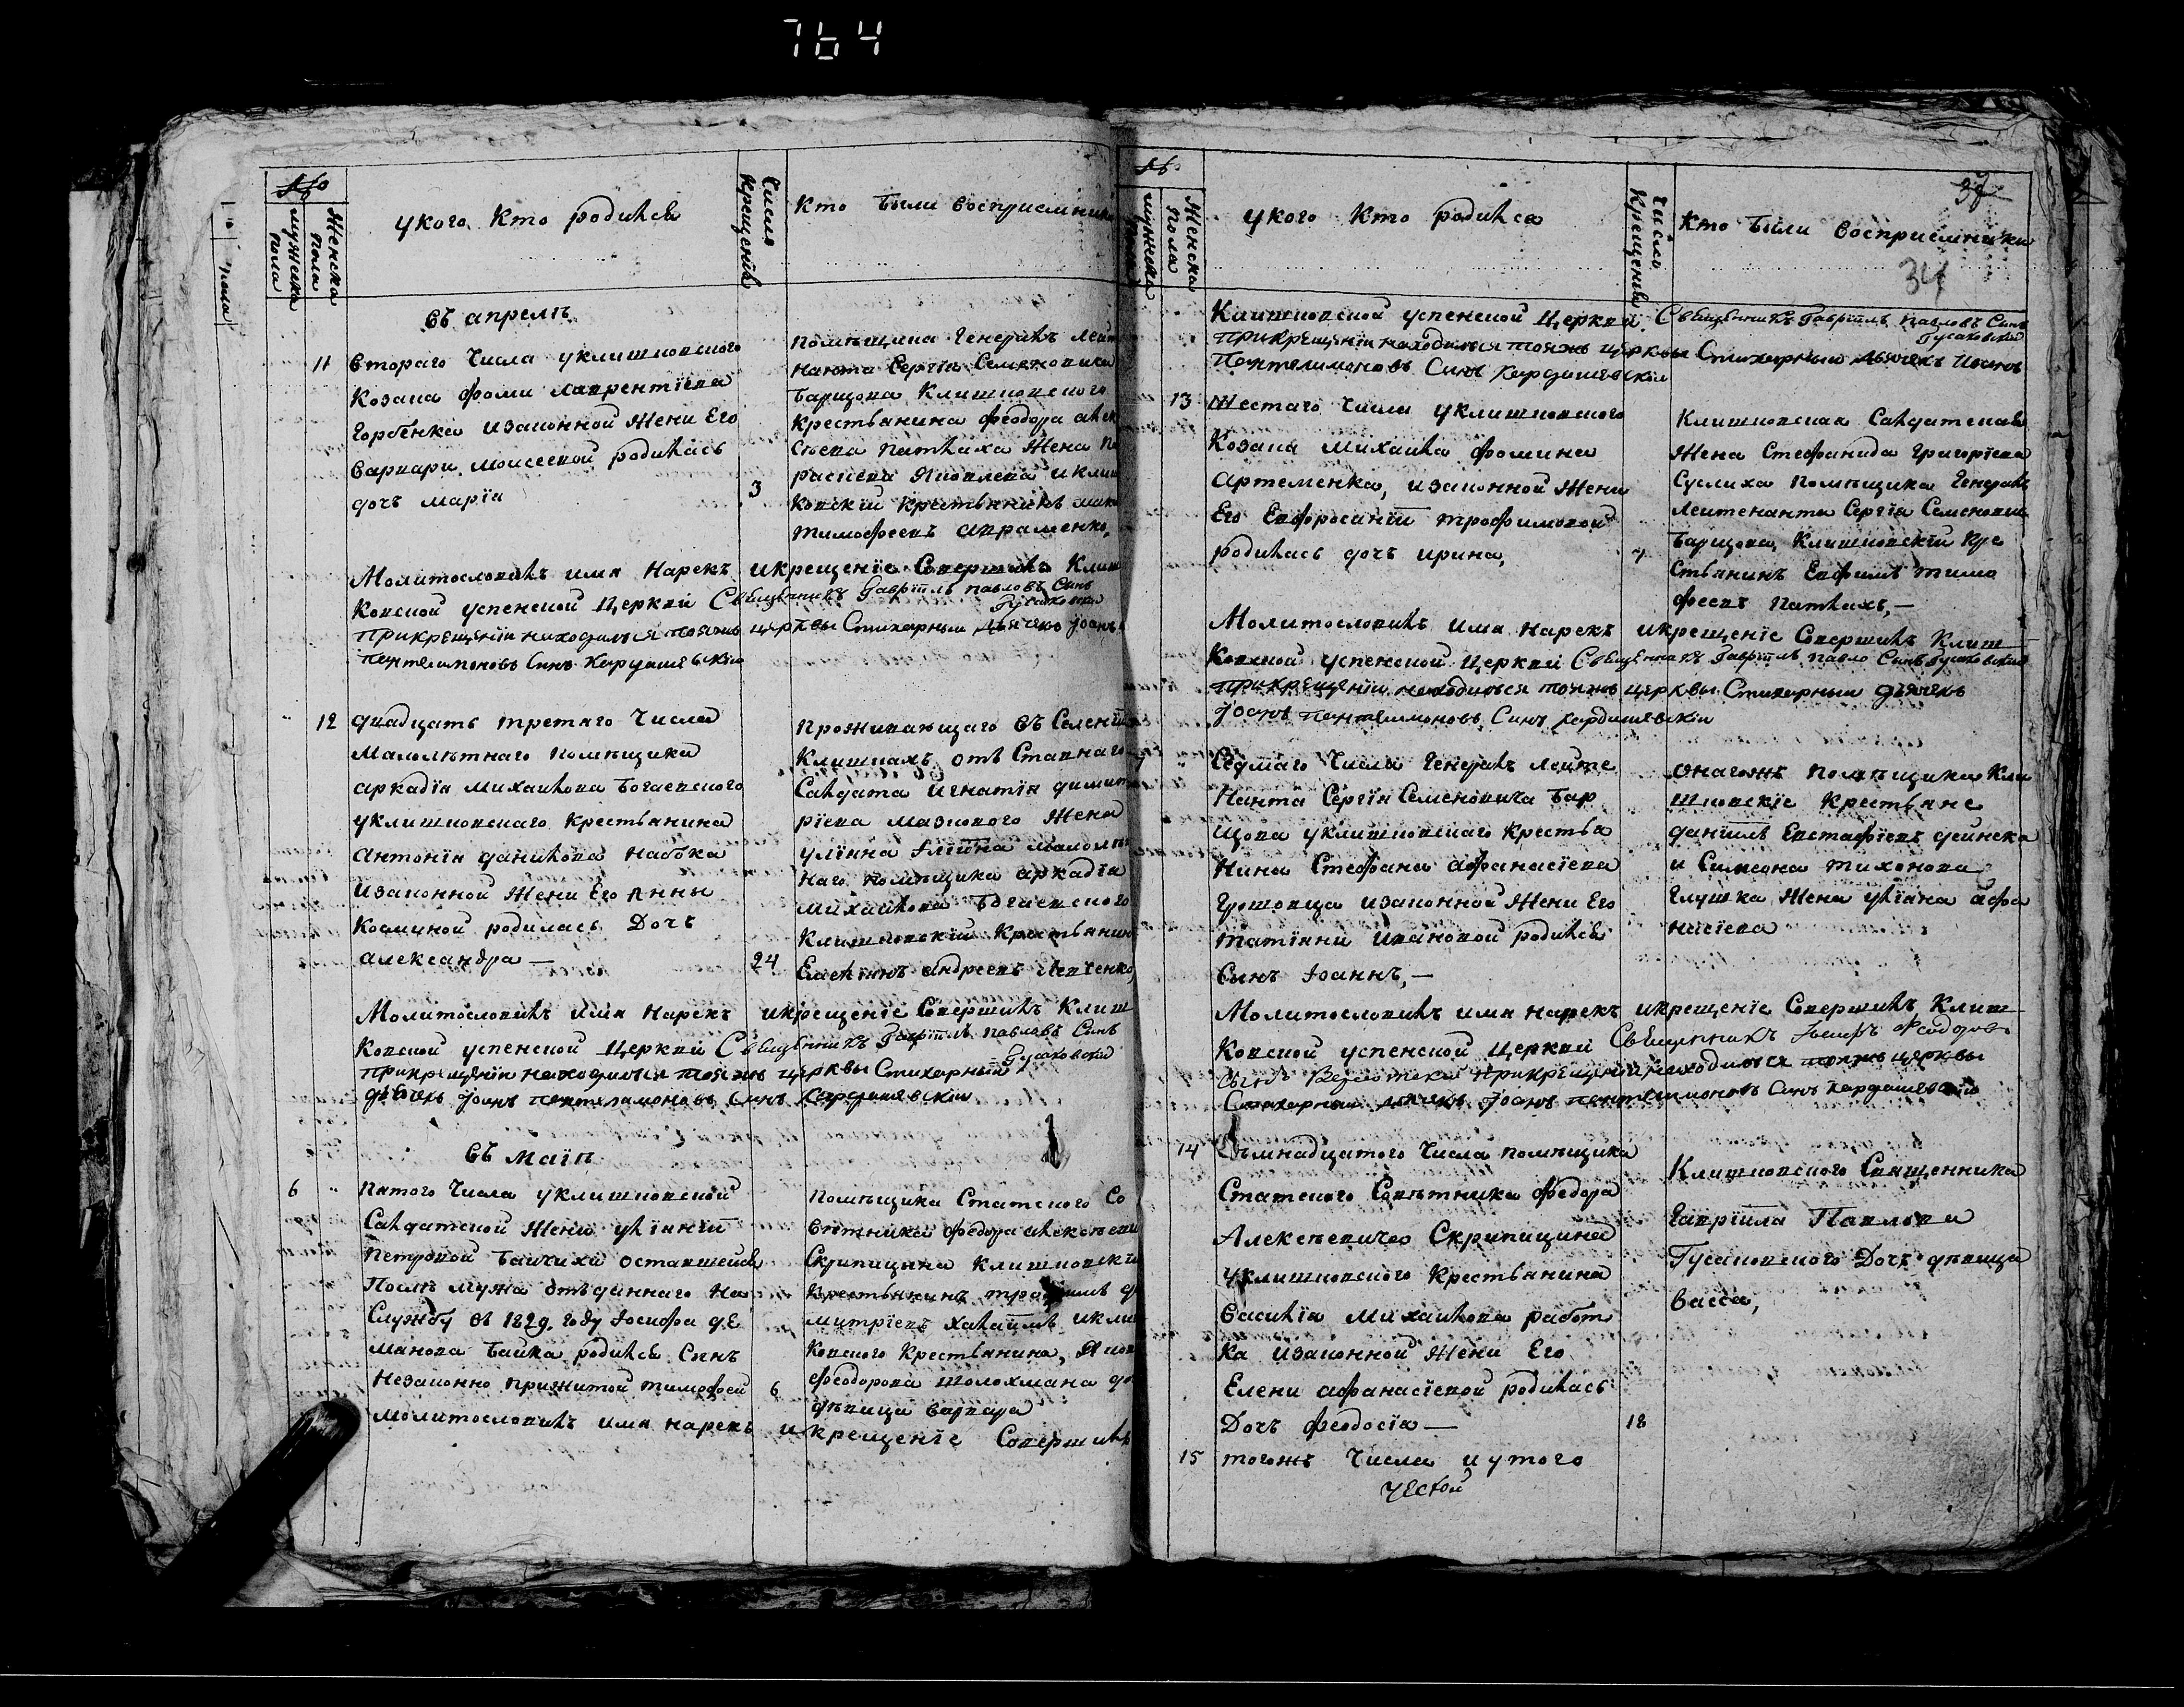 764
№
мужеска пола
Женска пола
укого кто родился
Числа крещенія
Кто были восприемники
въ апрелѣ
11
втораго Числа уклишковского
Козака фоми лаврентіева
Горбенка изаконной Жени Его
варвари моисеевой родилась
дочь марія
3
помѣщика Генералъ лейт
нанта Сергія Семеновича
Барщова Клишковского
крестьянина феодора алек
сѣева патлаха Жена па
раскева Яковлева и клиш
ковскій крестьянинъ
тимофеевъ авраменко,
Молитвословилъ имя Нарекъ и крещеніе Совершилъ Клиш
Ковской успенской Церкви Священникъ Гавріилъ павловъ Сынъ
Гусаковскій
прикрещеніи находился тояжъ церквы Стихарный дьячекъ Іоанъ
пантелимоновъ Синъ Кардашевскій
12
двадцать третаго Числа
Малолѣтнаго помѣщика
аркадія михаилова Богаевского
уклишковскаго крестьянина
антонія данилова набока
изаконной Жени Его Анны
Косминой родилась Дочь
александра —
24
проживающаго въ Селеніи
Клишкахъ отъ Ставнаго
Салдата игнатія димит
ріева мазкового Жена
уліяна Іліина малолѣт
наго помѣщика аркадія
михаилова Богаевского
Клишковскій Крестьянинъ
андреевъ Левченко,
Молитвословилъ имя Нарекъ и крещеніе Совершилъ Клиш
Ковской успенской Церкви Священникъ Гавріилъ павловъ Сынъ
Гусаковскій
прикрещеніи находился тояжъ церквы Стихарный
дьячекъ Іоанъ пантелимоновъ Синъ Кардашевскій
въ маіѣ
6
пятого Числа уклишковской
Салдатской Жени уліяніи
петровой Байчихи оставшейся
Послѣ мужа отъданнаго на
Службу въ 1829. году Іосифа де
манова Байка родился Синъ
незаконно прижитой тимофей
6
помѣщика Статского Со
вѣтника феодора алексѣеви
Скрипицина Клишковскій
Крестьянинъ трофимъ ди
митріевъ халаимъ и клиш
Ковского Крестьянина, Яков
феодорова шолохмана до
дѣвица варвара
Молитвословилъ имя нарекъ и крещеніе Совершилъ
№
мужеска пола
Женска пола
укого кто родился
Число Крещенія
Кто были восприемники
37
34
Клишковской успенской Церкви. Священникъ Гавріилъ павловъ Синъ
Гусаковскій
прикрещеніи находился тояжъ церквы Стихарный дьячекъ Иоанъ
Пантелимоновъ Синъ Кардашевскій
13
Шестаго Числа уклишковского
Козака Михаила фомина
артеменка, изаконной Жени
Его Евфросиніи трофимовой
родилась дочь ирина,
7
Клишковская Салдатская
Жена Стефанида Григоріева
Суслиха помѣщика Генералъ
Лейтенанта Сергія Семенович
Барщова, Клишковскій Кре
стьянинъ Евфимъ тимо
феевъ патлахъ, —
Молитвословилъ имя нарекъ и крещеніе Совершилъ Клиш
Ковской успенской Церкви Священникъ Гавріилъ павло Сынъ Гусаковскій
прикрещеніи находился тояжъ церквы Стихарный дьячекъ
Іоанъ пантелимоновъ Синъ Кардашевскій
7
Седмаго Числа Генералъ лейте
Нанта Сергія Семеновича Бар
щова уклишковскаго крестья
нина Стефана афанасіева
Грошовца изаконной Жени Его
татіянни ивановой родился
Сынъ Іоаннъ, —
онагожъ помѣщика Кли
шковскіе Крестьяне
даніилъ Евстафіевъ дейнека
и Симеона тихонова
Глушка Жена уліяна афа
насіева
Молитвословилъ имя нарекъ и крещеніе Совершилъ Клиш
Ковской успенской Церкви Священникъ Феодоровъ
Сынъ прикрещеніи находился тояжъ церквы
Стихарный дьячекъ Іоанъ пантелимоновъ Синъ Кардашевскій
14
Семнадцатого Числа помѣщика
Статского Совѣтника феодора
Алексѣевича Скрипицина
уклишковского Крестьянина
василія Михаилова работ
ка изаконной Жени Его
Елени афанасіевой родилась
Дочь феодосія —
18
Клишковского Священника
Гавріила Павлова
Гусаковского Дочь дѣвица
васса,
15
тогожъ Числа и утого